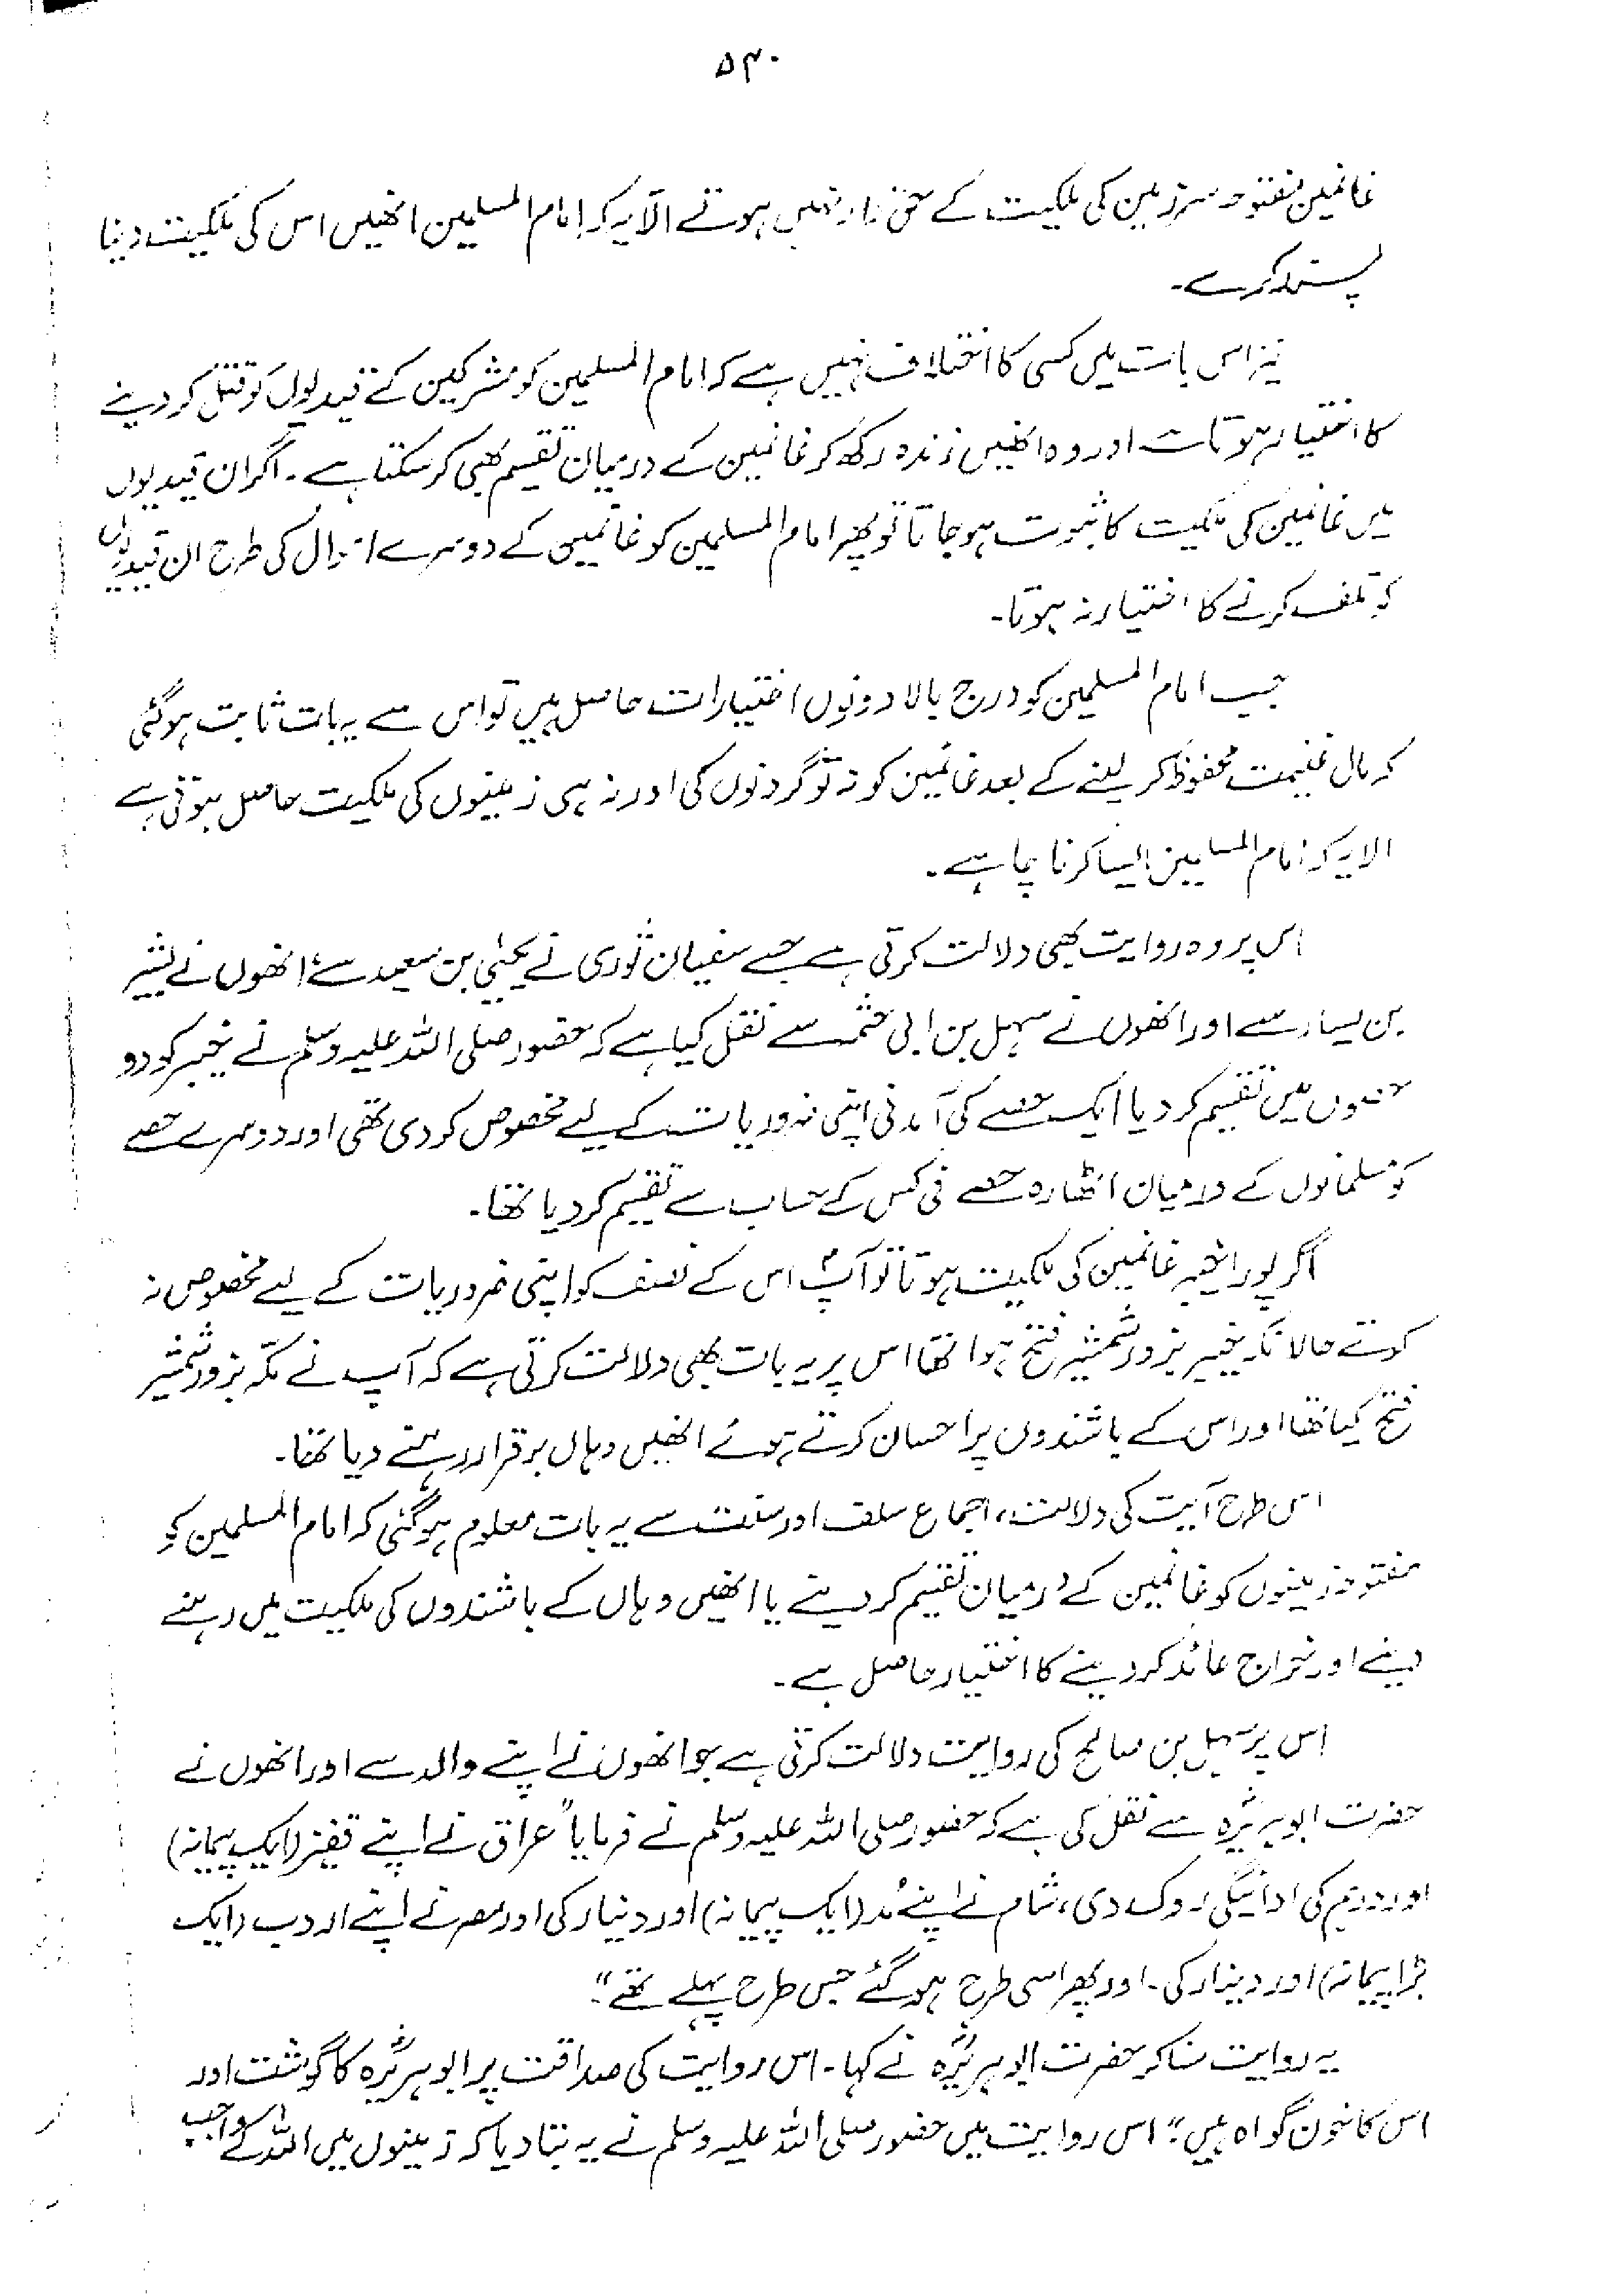 ۵۴۰
غانمین مفتوحہ سرزمین کی ملکیت کے حق دار نہیں ہوتے الّا یہ کہ امام المسلمین انھیں اس کی ملکیت دینا
پسند کرے۔
نیز اس بات میں کسی کا اختلاف نہیں ہے کہ امام المسلمین کو مشرکین کے قیدیوں کو قتل کر دینے
کا اختیار ہوتا ہے اور وہ انھیں زندہ رکھ کر غانمین کے درمیان تقسیم بھی کر سکتا ہے۔ اگر ان قیدیوں
میں غانمین کی ملکیت کا ثبوت ہو جاتا تو پھر امام المسلمین کو غانمین کے دوسرے اموال کی طرح ان قیدیوں
کو تلف کرنے کا اختیار نہ ہوتا۔
جب امام المسلمین کو درج بالا دونوں اختیارات حاصل ہیں تو اس سے یہ بات ثابت ہو گئی
کہ مال غنیمت محفوظ کر لینے کے بعد غانمین کو نہ تو گردنوں کی اور نہ ہی زمینوں کی ملکیت حاصل ہوتی ہے
الا یہ کہ امام المسلمین ایسا کرنا چاہے۔
اس پر وہ روایت بھی دلالت کرتی ہے جسے سفیان ثوری نے یحییٰ بن سعید سے، انھوں نے بشیر
بن یسار سے اور انھوں نے سہل بن ابی حثمہ سے نقل کیا ہے کہ حضور صلی اللہ علیہ وسلم نے خیبر کو دو
حصوں میں تقسیم کر دیا ایک حصے کی آمدنی اپنی ضروریات کے لیے مخصوص کر دی تھی اور دوسرے حصے
کو مسلمانوں کے درمیان اٹھارہ حصے فی کس کے حساب سے تقسیم کر دیا تھا۔
اگر پورا خیبر غانمین کی ملکیت ہوتا تو آپؐ اس کے نصف کو اپنی ضروریات کے لیے مخصوص نہ
کرتے حالانکہ خیبر بزور شمشیر فتح ہوا تھا اس پر یہ بات بھی دلالت کرتی ہے کہ آپ نے مکّہ بزور شمشیر
فتح کیا تھا اور اس کے باشندوں پر احسان کرتے ہوئے انھیں وہاں برقرار رہنے دیا تھا۔
اس طرح آیت کی دلالت، اجماع سلف اور سنت سے یہ بات معلوم ہو گئی کہ امام المسلمین کو
مفتوحہ زمینوں کو غانمین کے درمیان تقسیم کر دینے یا انھیں وہاں کے باشندوں کی ملکیت میں رہنے
دینے اور خراج عائد کر دینے کا اختیار حاصل ہے۔
اس پر سہیل بن صالح کی روایت دلالت کرتی ہے جو انھوں نے اپنے والد سے اور انھوں نے
حضرت ابوہریرہؓ سے نقل کی ہے کہ حضور صلی اللہ علیہ وسلم نے فرمایا "عراق نے اپنے قفیز (ایک پیمانہ)
اور درہم کی ادائیگی روک دی، شام نے اپنے مُد (ایک پیمانہ) اور دینار کی اور مصر نے اپنے اردب (ایک
بڑا پیمانہ) اور دینار کی۔ اور پھر اسی طرح ہو گئے جس طرح پہلے تھے"۔
یہ روایت سنا کر حضرت ابوہریرہؓ نے کہا۔ اس روایت کی صداقت پر ابوہریرہؓ کا گوشت اور
اس کا خون گواہ ہیں"۔ اس روایت میں حضور صلی اللہ علیہ وسلم نے یہ بتا دیا کہ زمینوں میں اللہ کے واجب